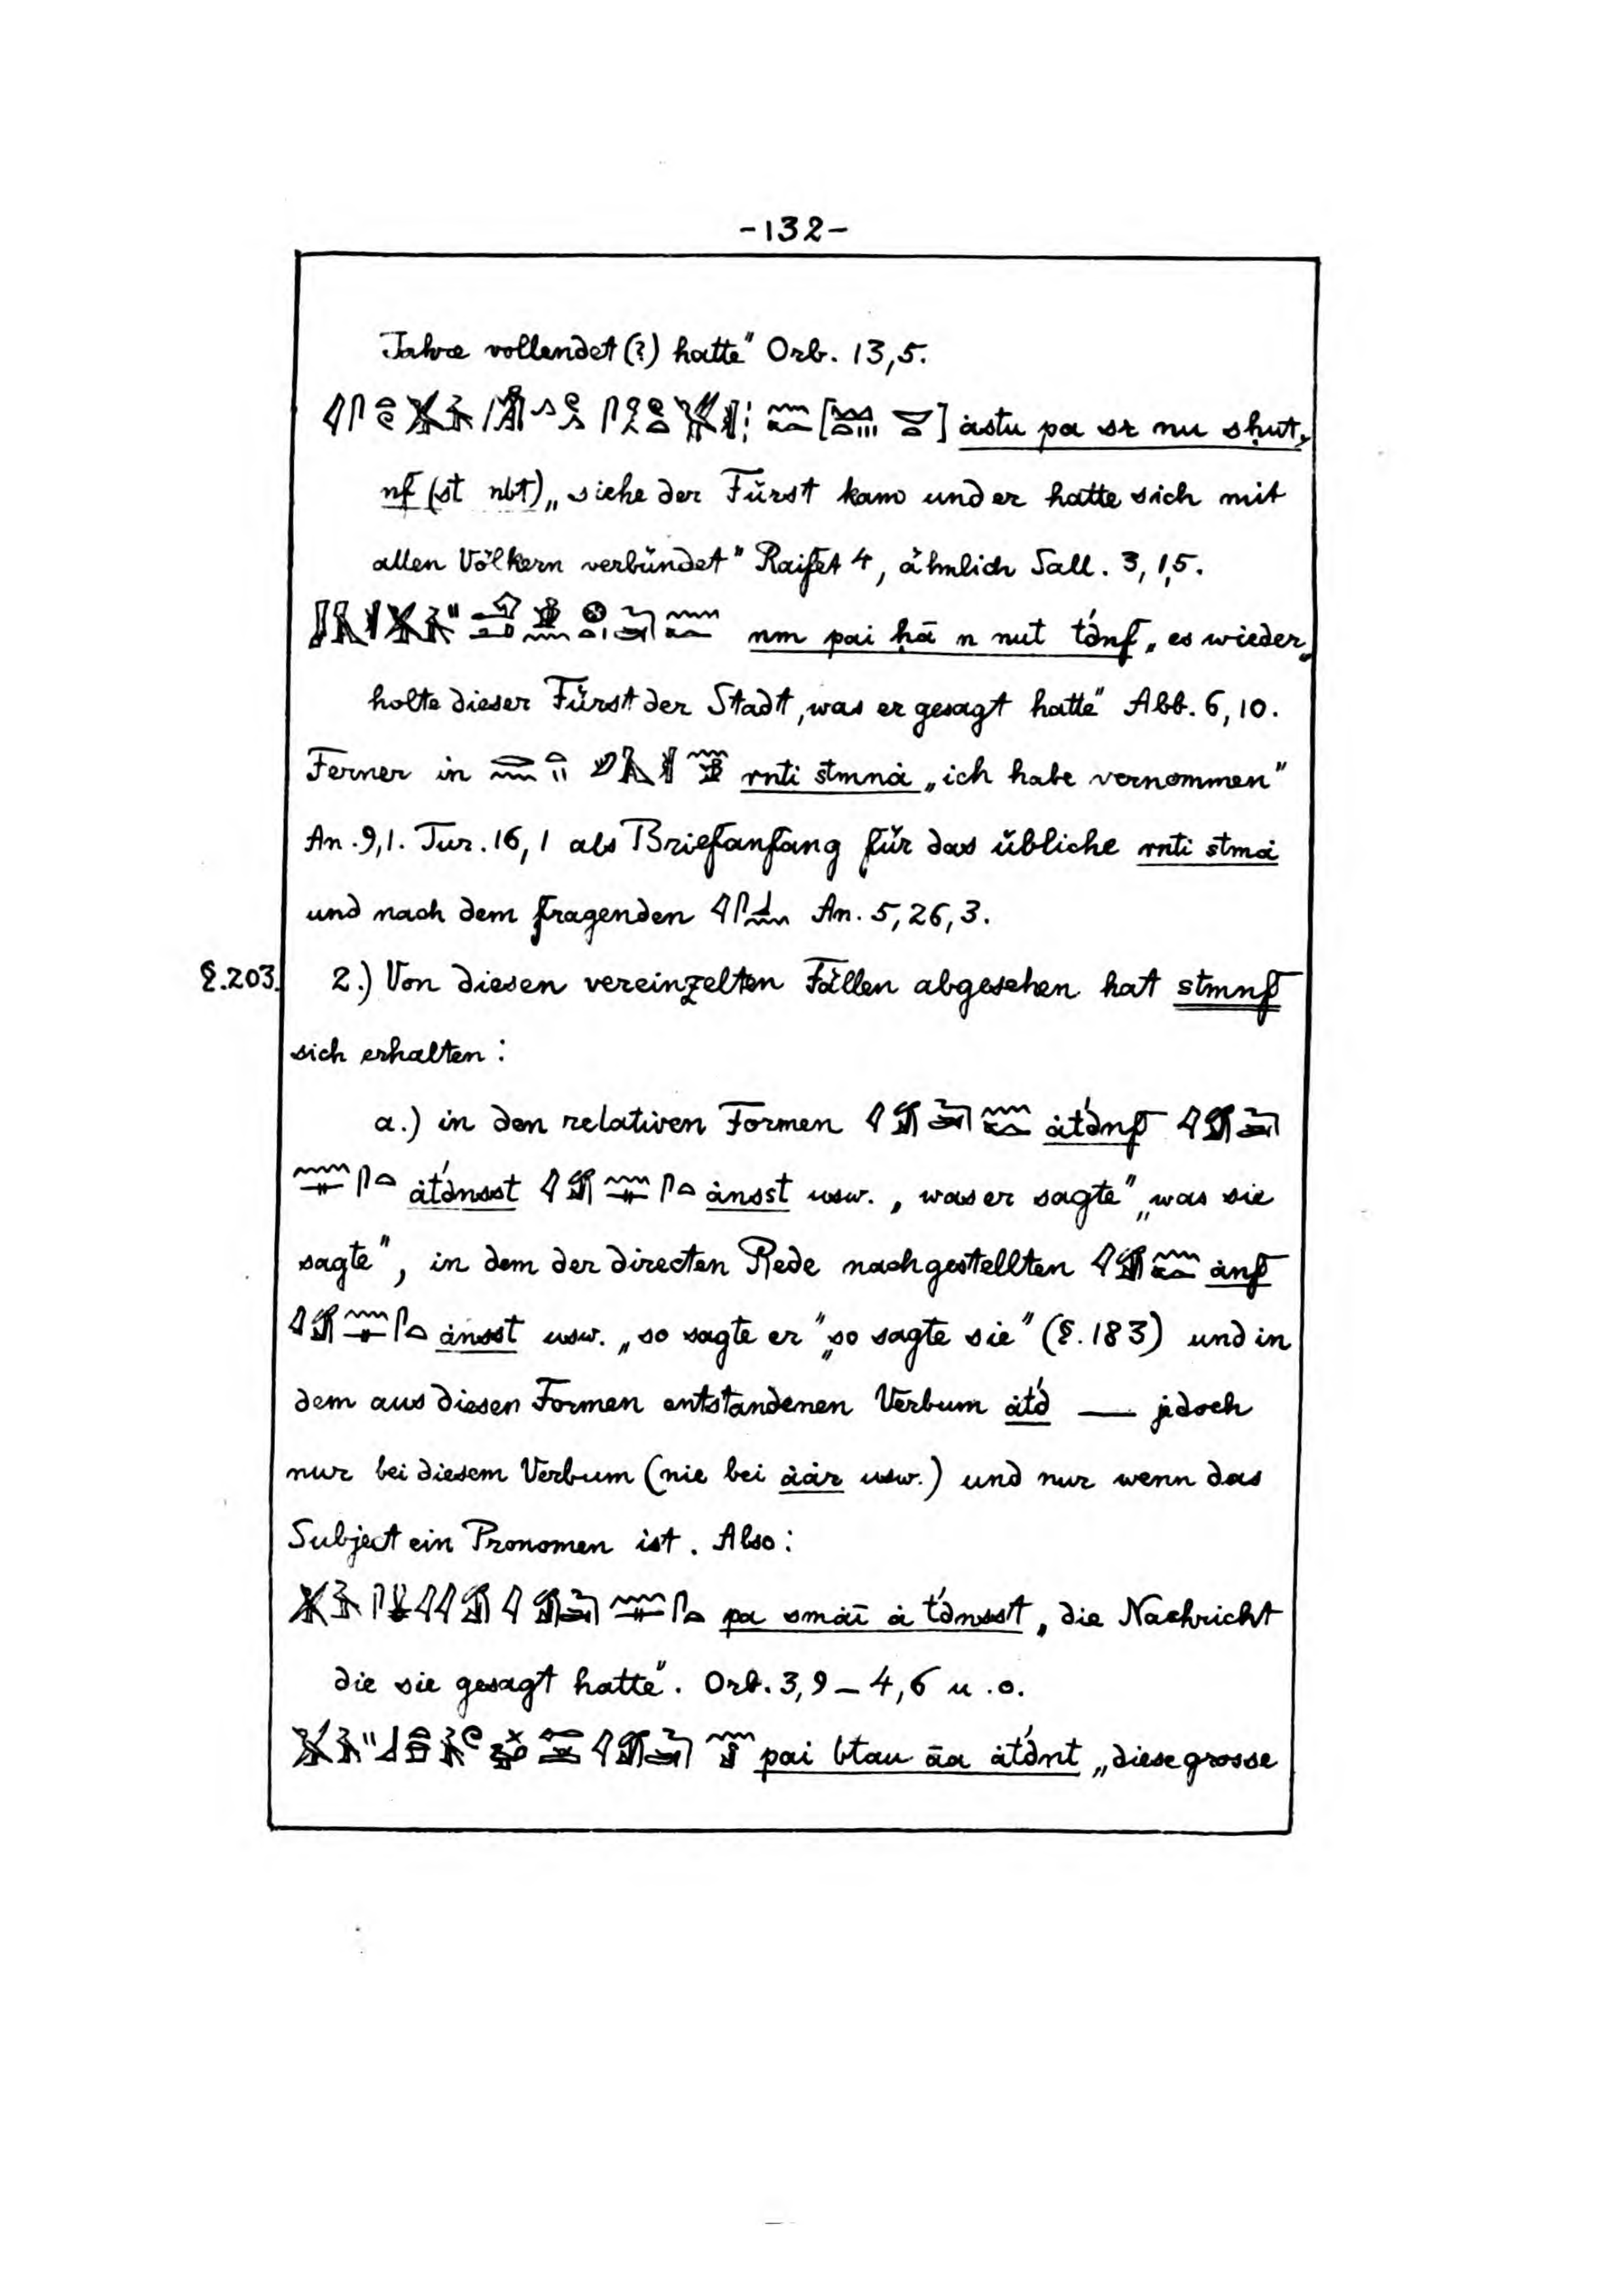 -132-
Jahre vollendet (?) hatte" Orb. 13,5.
[ ] ȧstu pa sr nu sḥut,
nf (st nbt) „siehe der Fürst kam und er hatte sich mit
allen Völkern verbündet" Raifet 4, ähnlich Sall. 3, 1,5.
nm pai ḥā n nut t́dnf „es wieder„
holte dieser Fürst der Stadt, was er gesagt hatte" Abb. 6, 10.
Ferner in rnti stmnȧ „ich habe vernommen"
An. 9, 1. Tur. 16, 1 als Briefanfang für das übliche rnti stmȧ
und nach dem fragenden An. 5, 26, 3.
§.203. 2.) Von diesen vereinzelten Fällen abgesehen hat stmnf
sich erhalten:
a.) in den relativen Formen ȧt́dnf
ȧt́dnsst ȧnsst usw. „was er sagte" „was sie
sagte", in dem der directen Rede nachgestellten ȧnf
ȧnsst usw. „so sagte er" „so sagte sie" (§. 183) und in
dem aus diesen Formen entstandenen Verbum ȧt́d — jedoch
nur bei diesem Verbum (nie bei ȧȧr usw.) und nur wenn das
Subject ein Pronomen ist. Also:
pa smȧī ȧ t́dnsst „die Nachricht
die sie gesagt hatte". Orb. 3,9 — 4,6 u. o.
pai btau āa ȧt́dnt „diese grosse